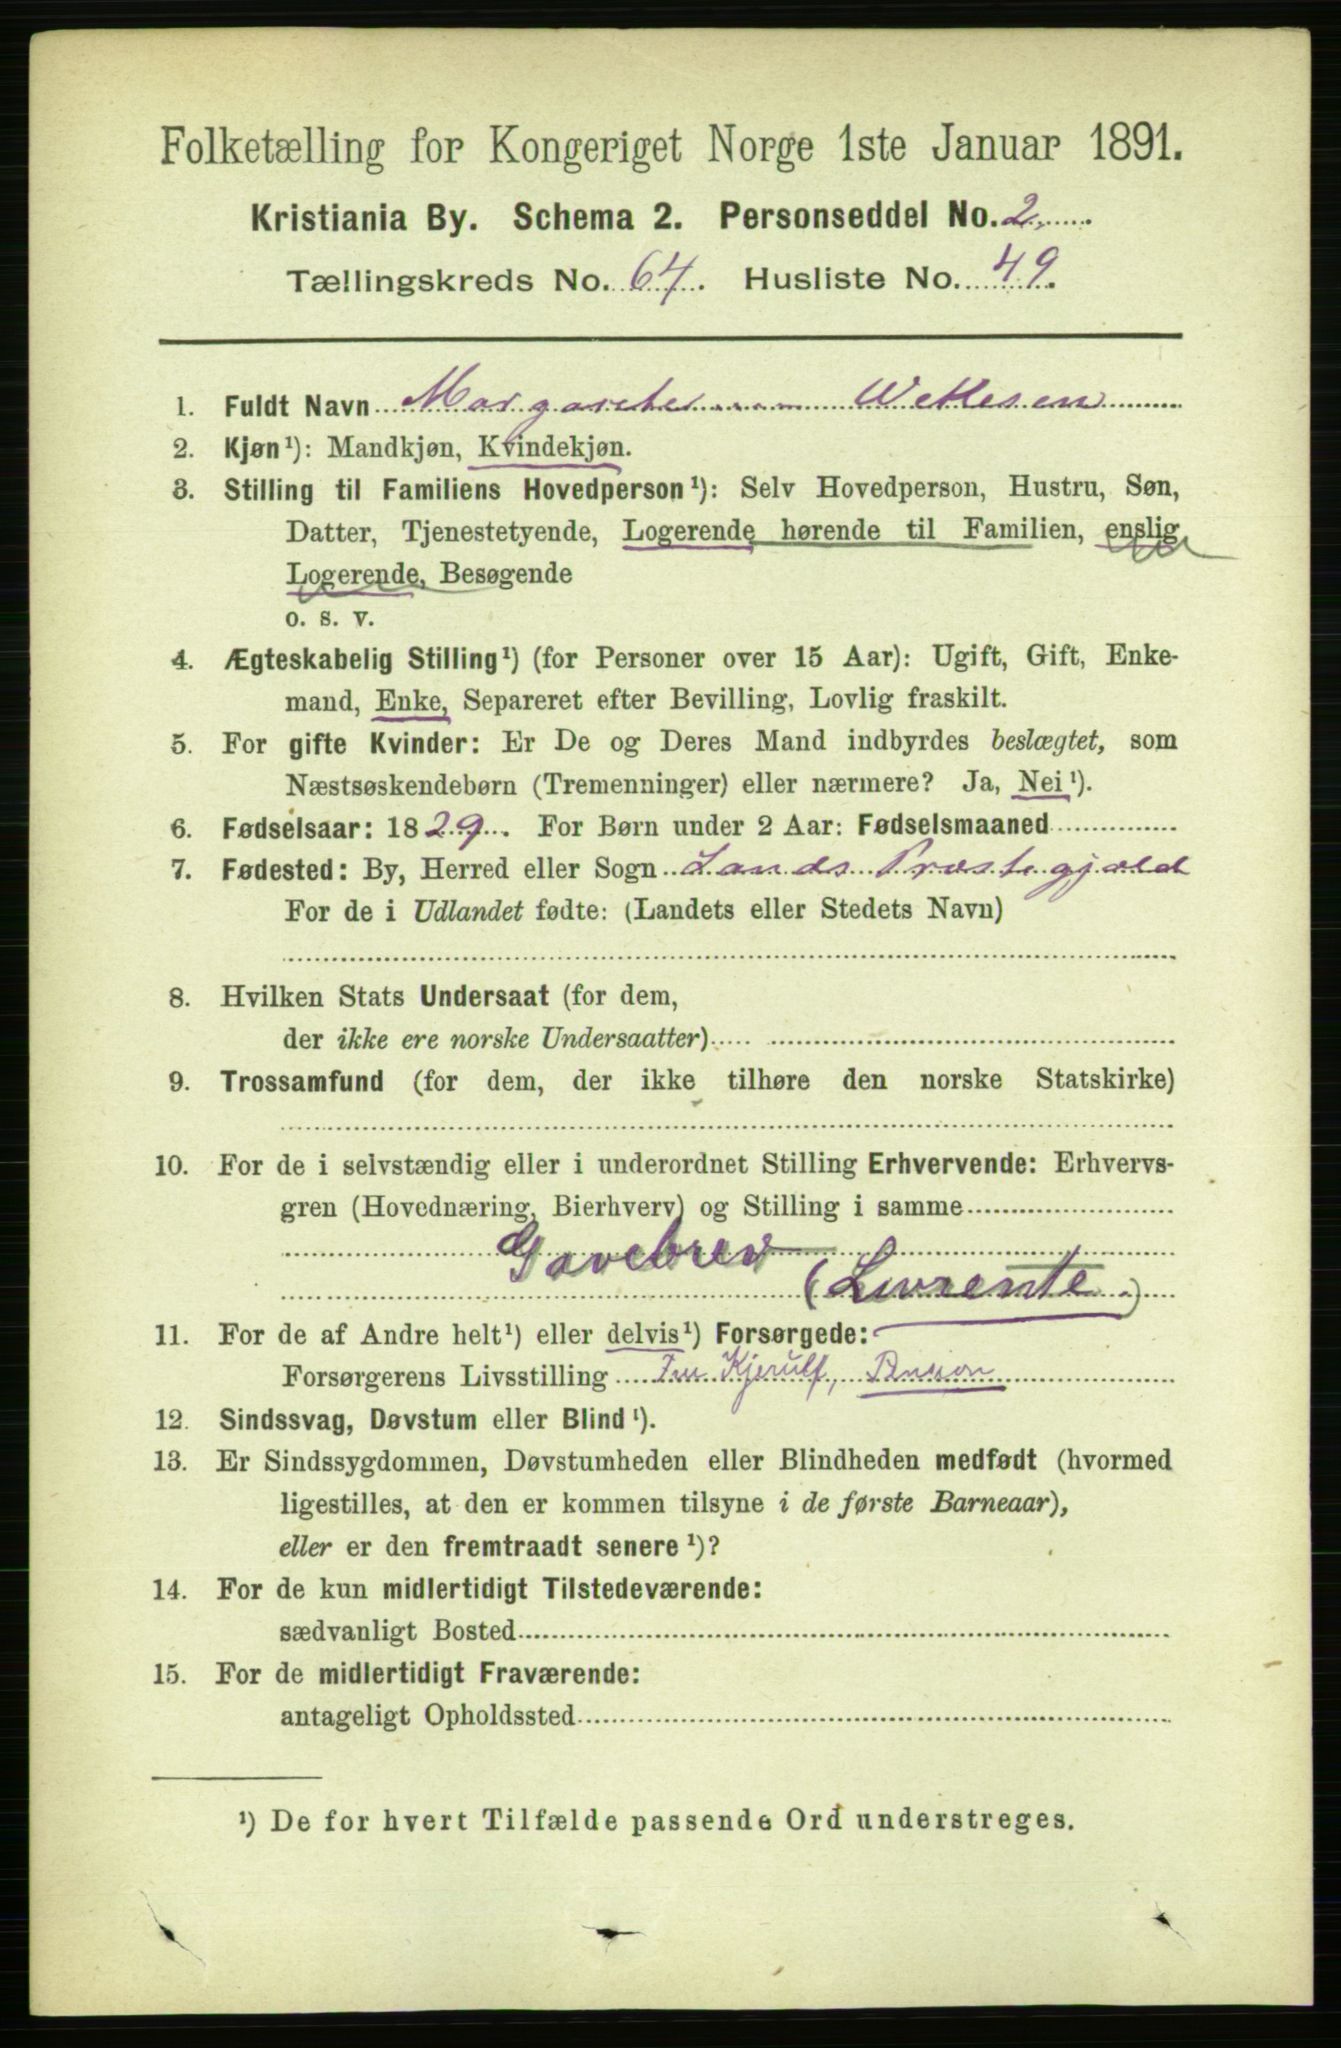 Folketælling for Kongeriget Norge 1ste Januar 1891.
Kristiania By. Schema 2. Personseddel No. 2.
Tællingskreds No. 64. Husliste No. 49.
1. Fuldt Navn Margarethe Wettesen
2. Kjøn¹): Mandkjøn, Kvindekjøn.
3. Stilling til Familiens Hovedperson¹): Selv Hovedperson, Hustru, Søn,
Datter, Tjenestetyende, Logerende hørende til Familien, enslig
Logerende, Besøgende
o. s. v.
4. Ægteskabelig Stilling¹) (for Personer over 15 Aar): Ugift, Gift, Enke-
mand, Enke, Separeret efter Bevilling, Lovlig fraskilt.
5. For gifte Kvinder: Er De og Deres Mand indbyrdes beslægtet, som
Næstsøskendebørn (Tremenninger) eller nærmere? Ja, Nei¹).
6. Fødselsaar: 1829. For Børn under 2 Aar: Fødselsmaaned
7. Fødested: By, Herred eller Sogn Lands Præstegjæld
For de i Udlandet fødte: (Landets eller Stedets Navn)
8. Hvilken Stats Undersaat (for dem,
der ikke ere norske Undersaatter)
9. Trossamfund (for dem, der ikke tilhøre den norske Statskirke)
10. For de i selvstændig eller i underordnet Stilling Erhvervende: Erhvervs-
gren (Hovednæring, Bierhverv) og Stilling i samme
Gavebrev
(Livrente.)
11. For de af Andre helt¹) eller delvis¹) Forsørgede:
Forsørgerens Livsstilling Kjerulf,
12. Sindssvag, Døvstum eller Blind¹).
13. Er Sindssygdommen, Døvstumheden eller Blindheden medfødt (hvormed
ligestilles, at den er kommen tilsyne i de første Barneaar),
eller er den fremtraadt senere¹)?
14. For de kun midlertidigt Tilstedeværende:
sædvanligt Bosted
15. For de midlertidigt Fraværende:
antageligt Opholdssted
¹) De for hvert Tilfælde passende Ord understreges.